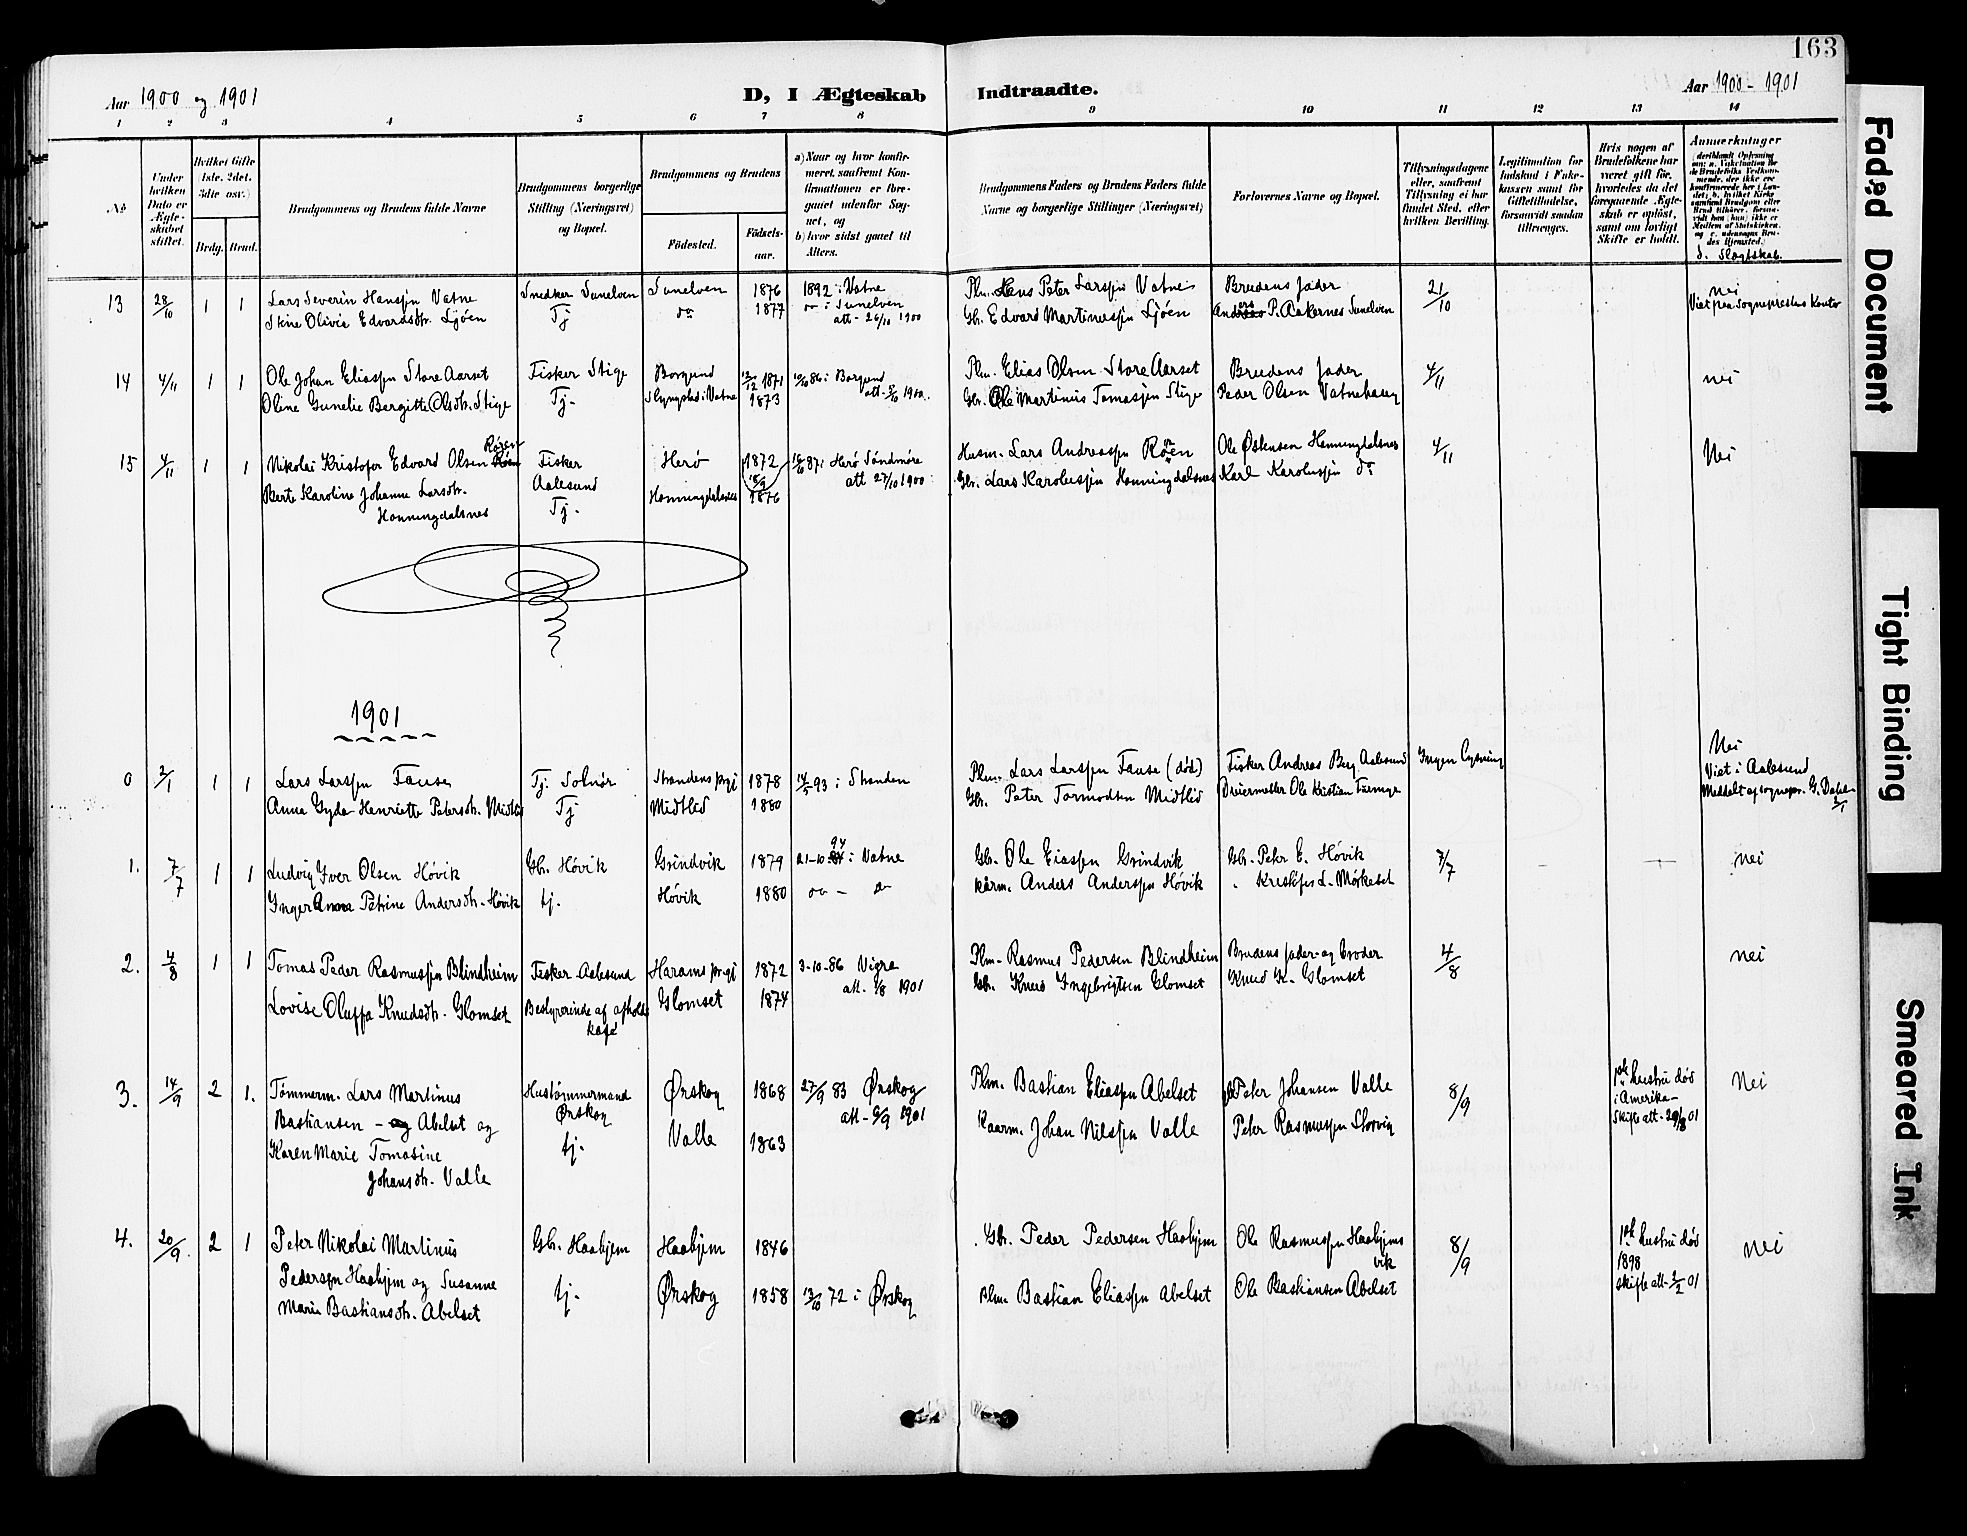 163
Aar 1900 og 1901
D, I Ægteskab Indtraadte.
Aar 1900 - 1901
1 2 3 4 5 6 7 8 9 10 11 12 13 14
No
Under hvilken Dato er Ægteskabet stiftet.
Hvilket Gifte (1ste, 2det, 3die osv.)
Brdg. Brud.
Brudgommens og Brudens fulde Navne
Brudgommens borgerlige Stilling (Næringsvei) og Bopæl.
Brudgommens og Brudens
Födested.
Födselsaar.
a) Naar og hvor konfirmeret, saafremt Konfirmationen er foregaaet udenfor Sognet, og
b) hvor sidst gaaet til Alters.
Brudgommens Faders og Brudens Faders fulde Navne og borgerlige Stillinger (Næringsvei)
Forlovernes Navne og Bopæl.
Tillysningsdagene eller, saafremt Tillysning ei har fundet Sted, efter hvilken Bevilling.
Legitimation for Indskud i Enkekassen samt for Giftetilladelse, forsaavidt saadan tiltrænges.
Hvis nogen af Brudefolkene har været gift för, hvorledes da det foregaaende Ægteskab er oplöst, samt om lovligt Skifte er holdt.
Anmærkninger
d. Slægtskab.
13 28/10 1 1 Lars Severin Hanssen Vatne Snedker Sunelven Sunelven 1876 1892 i Vatne Plm. Hans Peter Larssen Vatne Brudens fader 21/10 nei
Stine Olivia Edvardsdtr. Ljöen Tj do 1877 i Sunelven Gbr. Edvard Martinussen Ljöen Anders P. Aakernes Sunelven Viet paa Sogneprestens Kontor
att - 26/10 1900
14 4/11 1 1 Ole Johan Eliassen Store Aarset Fisker Stige Borgund 1871 10/10 86 i Borgund Plm. Elias Olsen Store Aarset Brudens fader 4/11 nei
Oline Gunelie Bergitte Olsdtr. Stige Tj. Slyngstad i Vatne 1873 Gbr. Ole Martinus Tomassen Stige Peder Olsen Vatnehaug
15 4/11 1 1 Nikolai Kristofer Edvard Olsen Röen Fisker Herö 1872 87 i Herö Söndmöre Husm. Lars Andreassen Röen Ole Östensen Honningdalsnes 4/11 Nei
Aalesund att 27/10 1900
Berte Karoline Johanne Larsdtr. Honningdalsnes 1876 Gbr. Lars Karolussen Honningdalsnes Karl Karolussen do
Honningdalsnes Tj.
1901
0 2/1 1 1 Lars Larssen Fause Tj. Solnör Strandens prgj 1878 14/5 93 i Stranden Plm. Lars Larssen Fause (död) Fisker Andreas Berg Aalesund Ingen lysning Nei
Anna Gyda Henriette Petersdtr. Midtlid Tj Midtlid 1880 Gbr. Peter Tormodsen Midtlid Dreiermester Ole Kristian Viet i Aalesund
Meddelt af sognepr. G. 2/1
1. 7/7 1 1 Ludvig Iver Olsen Hövik Gbr. Hövik Grindvik 1879 21-10 94 i Vatne Gbr. Ole Eiassen Grindvik Gbr. Peter E. Hövik 7/7 nei
Inger Anna Petrine Andersdtr. Hövik tj. Hövik 1880 Kårm. Anders Anderssen Hövik " Kristofer L. Mörkeset
2. 4/8 1 1 Tomas Peder Rasmussen Blindheim Fisker Aalesund Harams prgj 1872 3-10-86 Vigra Plm. Rasmus Pedersen Blindheim Brudens fader og broder 4/8 nei
att. 1/8 1901
Lovise Oluffa Knudsdtr. Glomset Bestyrerinde af afholdskafé Glomset 1874 Gbr. Knud Ingebrigtsen Glomset Knud K. Glomset
3. 14/9 2 1. Tömmerm. Lars Martinus Hustömmermand Ørskog 1868 27/9 83 Ørskog Plm. Bastian Eliassen Abelset Peter Johansen Valle 8/9 1ste hustru död Nei
Bastiansen - Abelset og Ørskog att - 6/9 1901 i Amerika -
Karen Marie Tomasine tj. Valle 1863 Kaarm. Johan Nilssen Valle Peter Rasmussen Storvig Skifte att - 29/8 01
Johansdtr. Valle
4. 20/9. 2 1 Peter Nikolai Martinus Gbr. Haahjem Haahjem 1846 Gbr. Peder Pedersen Haahjem Ole Rasmussen Haahjemsvik 8/9 1ste hustru död nei
Pederssen Haahjem og Susanne 1898
Marie Bastiansdtr. Abelset tj. Ørskog 1858 13/10 72 i Ørskog Plm. Bastian Eliassen Abelset Ole Bastiansen Abelset skifte att - 2/2 01
Faded Document
Tight Binding
Smeared Ink